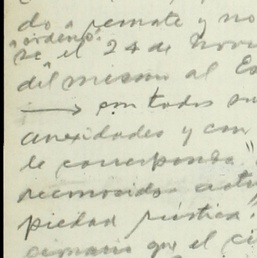 do a remate y no
"ordenó"
se el 24 de Novi
del mismo al Es
→ con todos su
anexidades y con
le corresponda"
reconocido actu
piedad rústica."
cionario que el ci